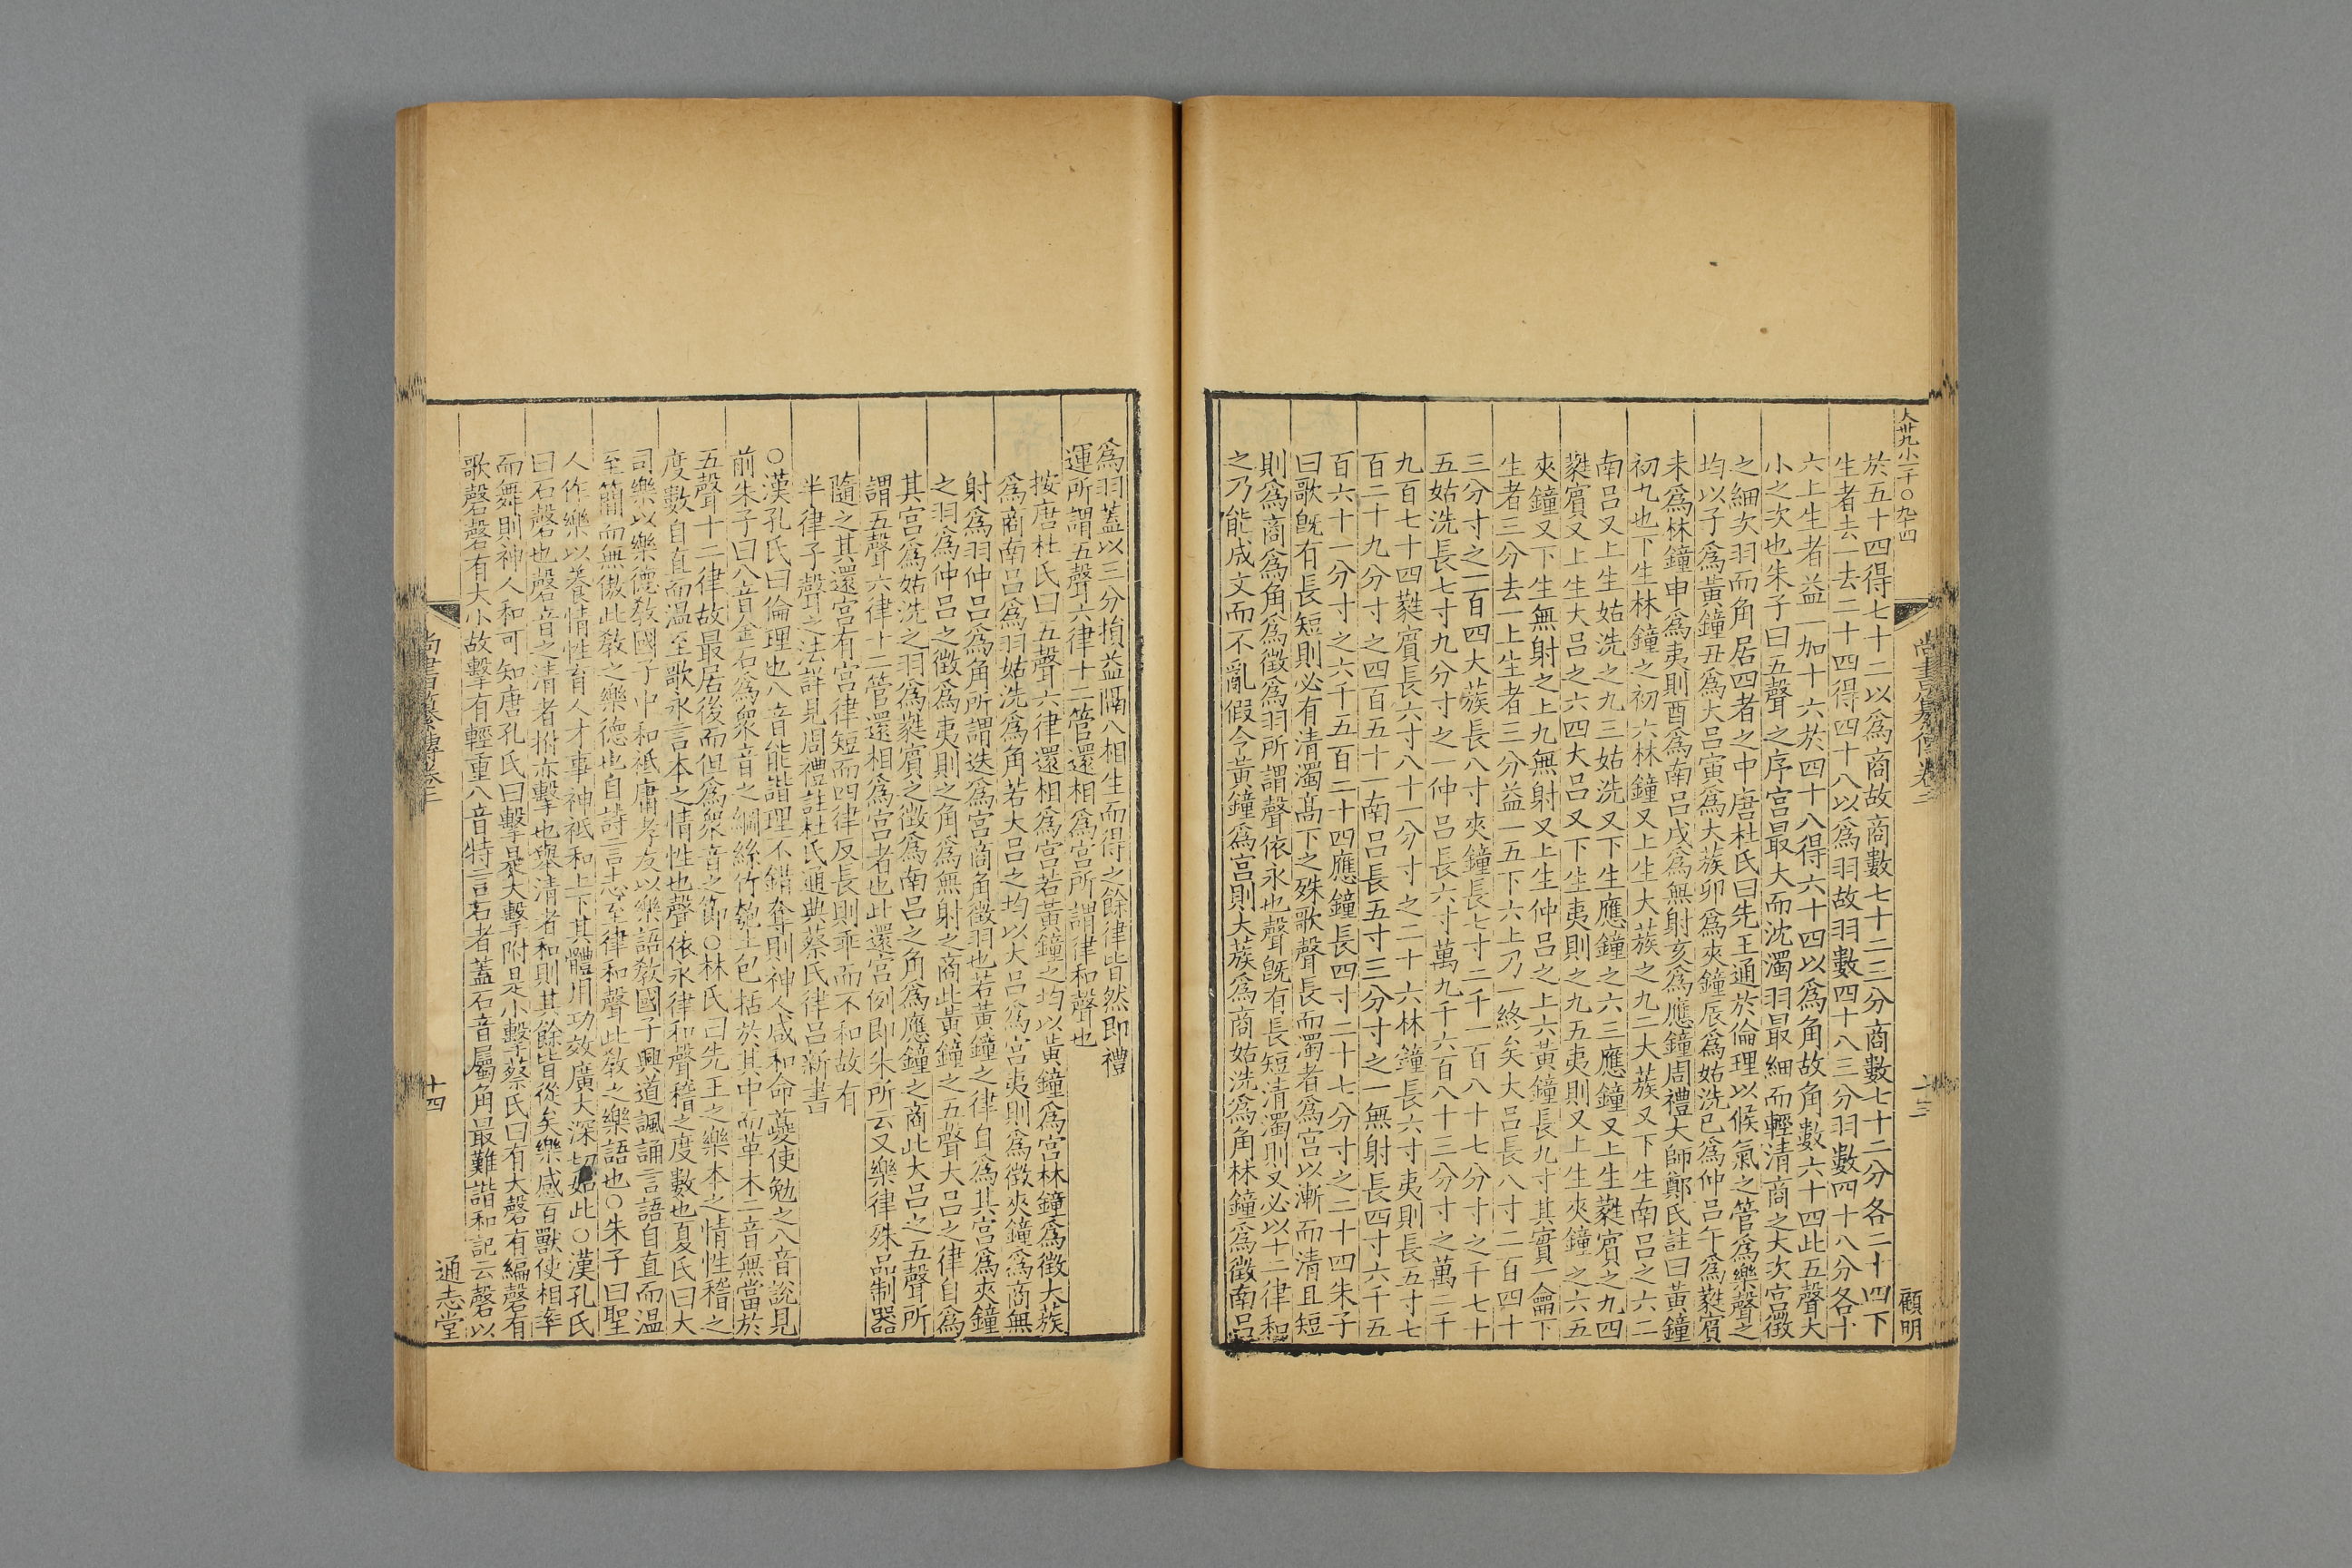 大卅九小一千〇九十四
尚書纂傳卷三
十三
顧明
於五十四得七十二以爲商故商數七十二三分商數七十二分各二十四下
生者去一去二十四得四十八以爲羽故羽數四十八三分羽數四十八分各十
六上生者益一加十六於四十八得六十四以爲角故角數六十四此五聲大
小之次也朱子曰五聲之序宮最大而沈濁羽最細而輕清商之大次宮徵
之細次羽而角居四者之中唐杜氏曰先王通於倫理以候氣之管爲樂聲之
均以子爲黃鐘丑爲大呂寅爲大蔟卯爲夾鐘辰爲姑洗巳爲仲呂午爲蕤賓
未爲林鐘申爲夷則酉爲南呂戌爲無射亥爲應鐘周禮大師鄭氏註曰黃鐘
初九也下生林鐘之初六林鐘又上生大蔟之九二大蔟又下生南呂之六二
南呂又上生姑洗之九三姑洗又下生應鐘之六三應鐘又上生蕤賓之九四
蕤賓又上生大呂之六四大呂又下生夷則之九五夷則又上生夾鐘之六五
夾鐘又下生無射之上九無射又上生仲呂之上六黃鐘長九寸其實一龠下
生者三分去一上生者三分益一五下六上乃一終矣大呂長八寸二百四十
三分寸之一百四大蔟長八寸夾鐘長七寸二千一百八十七分寸之千七十
五姑洗長七寸九分寸之一仲呂長六寸萬九千六百八十三分寸之萬二千
九百七十四蕤賓長六寸八十一分寸之二十六林鐘長六寸夷則長五寸七
百二十九分寸之四百五十一南呂長五寸三分寸之一無射長四寸六千五
百六十一分寸之六千五百二十四應鐘長四寸二十七分寸之二十四朱子
曰歌旣有長短則必有清濁髙下之殊歌聲長而濁者爲宮以漸而清且短
則爲商爲角爲徵爲羽所謂聲依永也聲旣有長短清濁則又必以十二律和
之乃能成文而不亂假令黃鐘爲宮則大蔟爲商姑洗爲角林鐘爲徵南呂
爲羽蓋以三分損益隔八相生而得之餘律皆然即禮
運所謂五聲六律十二管還相爲宮所謂律和聲也
按唐杜氏曰五聲六律還相爲宮若黃鐘之均以黃鐘爲宮林鐘爲徵大蔟
爲商南呂爲羽姑洗爲角若大呂之均以大呂爲宮夷則爲徵夾鐘爲商無
射爲羽仲呂爲角所謂迭爲宮商角徵羽也若黃鐘之律自爲其宮爲夾鐘
之羽爲仲呂之徵爲夷則之角爲無射之商此黃鐘之五聲大呂之律自爲
其宮爲姑洗之羽爲蕤賓之徵爲南呂之角爲應鐘之商此大呂之五聲所
謂五聲六律十二管還相爲宮者也此還宮例即朱所云又樂律殊品制器
隨之其還宮有宮律短而四律反長則乖而不和故有
半律子聲之法詳見周禮註杜氏通典蔡氏律呂新書
○漢孔氏曰倫理也八音能諧理不錯奪則神人咸和命夔使勉之八音說見
前朱子曰八音金石爲衆音之綱絲竹匏土包括於其中而革木二音無當於
五聲十二律故最居後而但爲衆音之節○林氏曰先王之樂本之情性稽之
度數自直而溫至歌永言本之情性也聲依永律和聲稽之度數也夏氏曰大
司樂以樂德敎國子中和祗庸孝友以樂語敎國子興道諷誦言語自直而温
至簡而無傲此敎之樂德也自詩言志至律和聲此敎之樂語也○朱子曰聖
人作樂以養情性育人才事神祇和上下其體用功效廣大深切如此○漢孔氏
曰石磬也磬音之清者拊亦擊也舉清者和則其餘皆從矣樂感百獸使相率
而舞則神人和可知唐孔氏曰擊是大擊拊是小擊蔡氏曰有大磬有編磬有
歌磬磬有大小故擊有輕重八音特言石者蓋石音屬角最難諧和記云磬以
尚書纂傳卷三
十四
通志堂